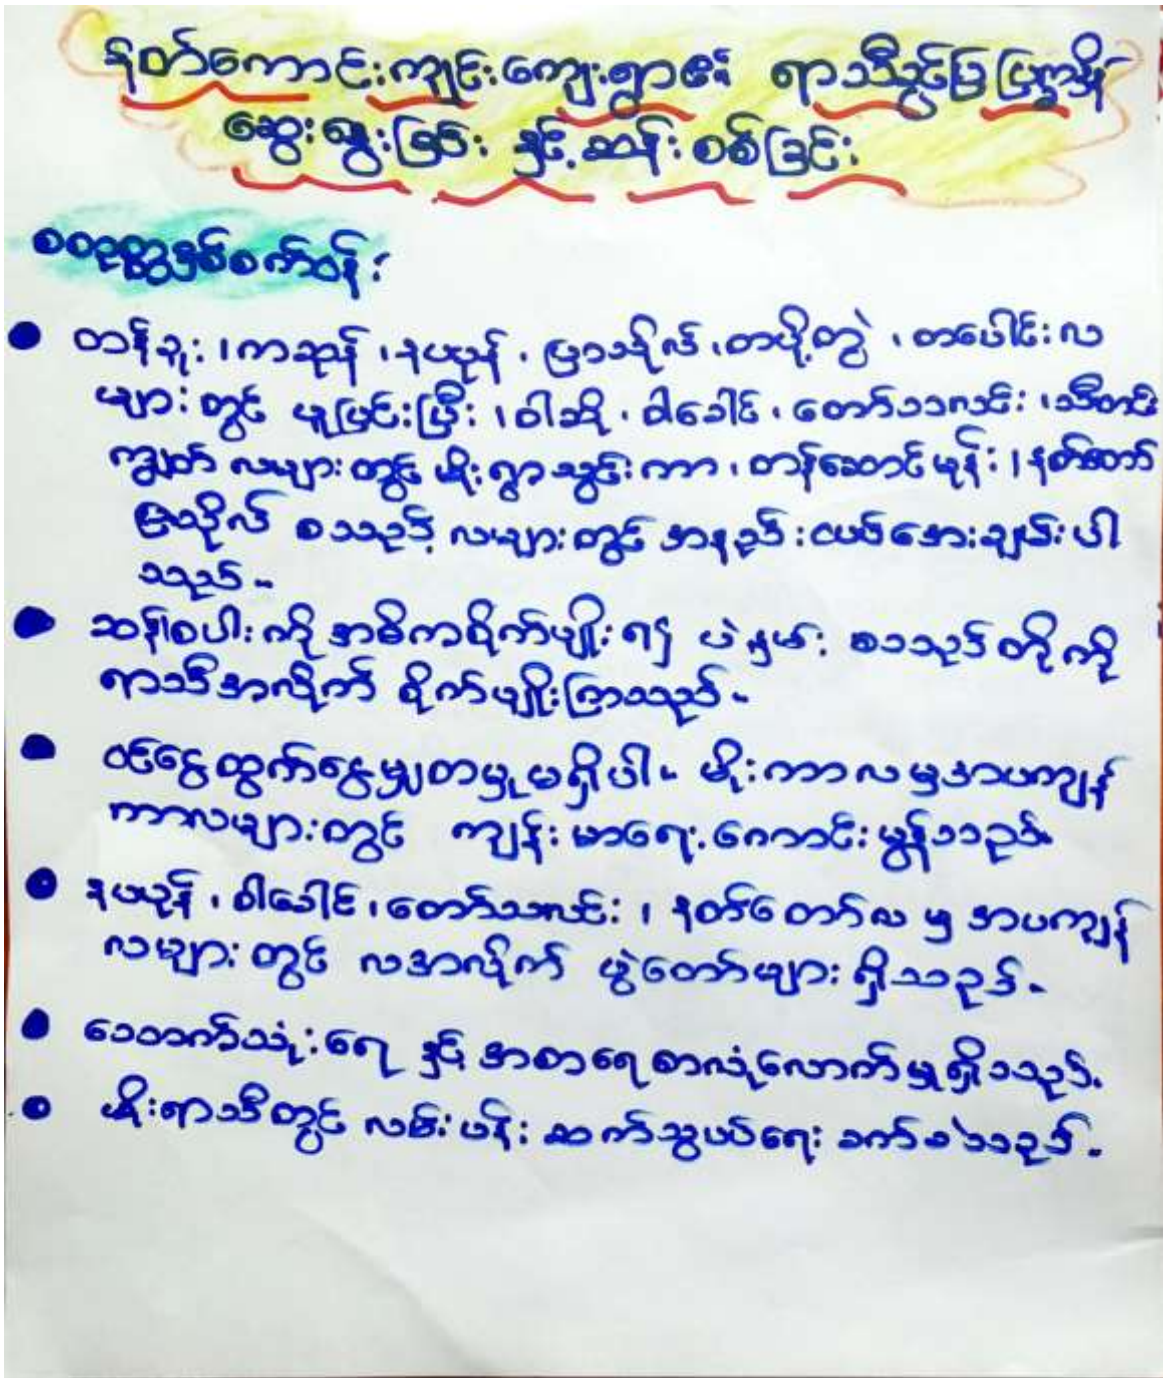 နတ်ကောင်းကျင်းကျေးရွာ၏ ရာသီခွင်ပြ ပြက္ခဒိန်
ဆွေးနွေးခြင်း နှင့် ဆန်းစစ်ခြင်း
စတုတ္ထနှစ်စက်ဝန်း
တန်ခူး ၊ ကဆုန် ၊ နယုန် ၊ ပြာသိုလ် ၊ တပို့တွဲ ၊ တပေါင်းလ
များတွင် ပူပြင်းပြီး ၊ ဝါဆို ၊ ဝါခေါင် ၊ တော်သလင်း ၊ သီတင်း
ကျွတ် လများတွင် မိုးရွာသွင်းကာ ၊ တန်ဆောင်မုန်း ၊ နတ်တော်
ပြာသိုလ် စသည့် လများတွင် အနည်းငယ်အေးချမ်းပါ
သည်။
ဆန်စပါးကို အဓိကစိုက်ပျိုး၍ ပဲ နှမ်း စသည်တို့ကို
ရာသီအလိုက် စိုက်ပျိုးကြသည်။
ဝင်ငွေထွက်ငွေမျှတမှုမရှိပါ။ မိုးကာလမှအပကျန်
ကာလများတွင် ကျန်းမာရေးကောင်းမွန်သည်။
နယုန် ၊ ဝါခေါင် ၊ တော်သလင်း ၊ နတ်တော်လ မှ အပကျန်
လများတွင် လအလိုက် ပွဲတော်များ ရှိသည်။
သောက်သုံးရေ နှင့် အစာရေစာလုံလောက်မှုရှိသည်။
မိုးရာသီတွင် လမ်းပန်း ဆက်သွယ်ရေး ခက်ခဲသည်။